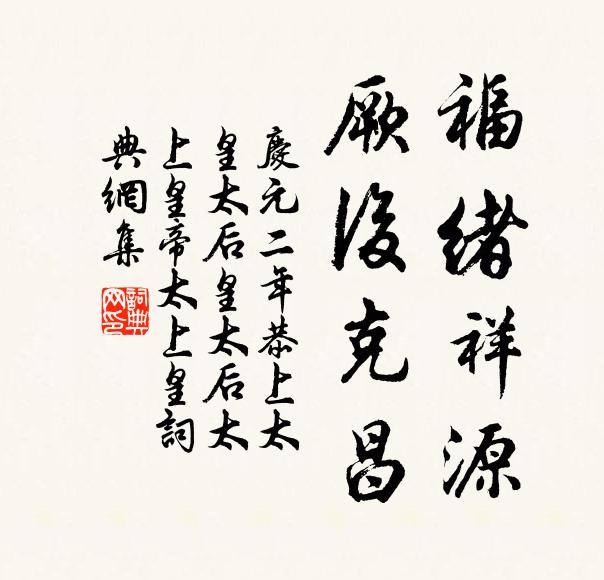 福緒祥源
厥後克昌
慶元二年恭上太
皇太后皇太后太
上皇帝太上皇詞
典網集
詞典
网印